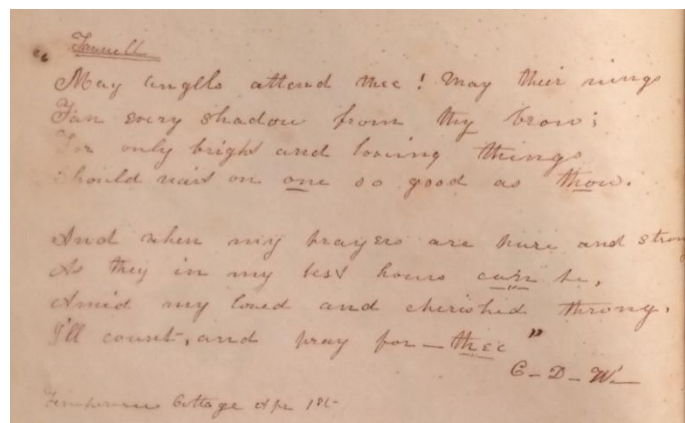 " Farewell
May angells attend thee! May their wings
Fan every shadow from thy brow;
For only bright and loving things
Should wait on one so good as thou.
And when my prayers are pure and strong
As they in my best hours can be,
Amid my loved and cherished throng,
I'll count, and pray for — thee"
C — D — W —
Cottage Apr 1st